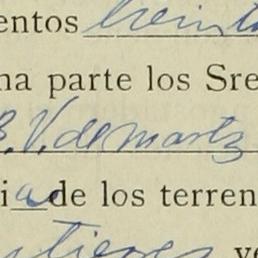 entos treinta
na parte los Sre
E. V. de Martz
ia de los terren
ve